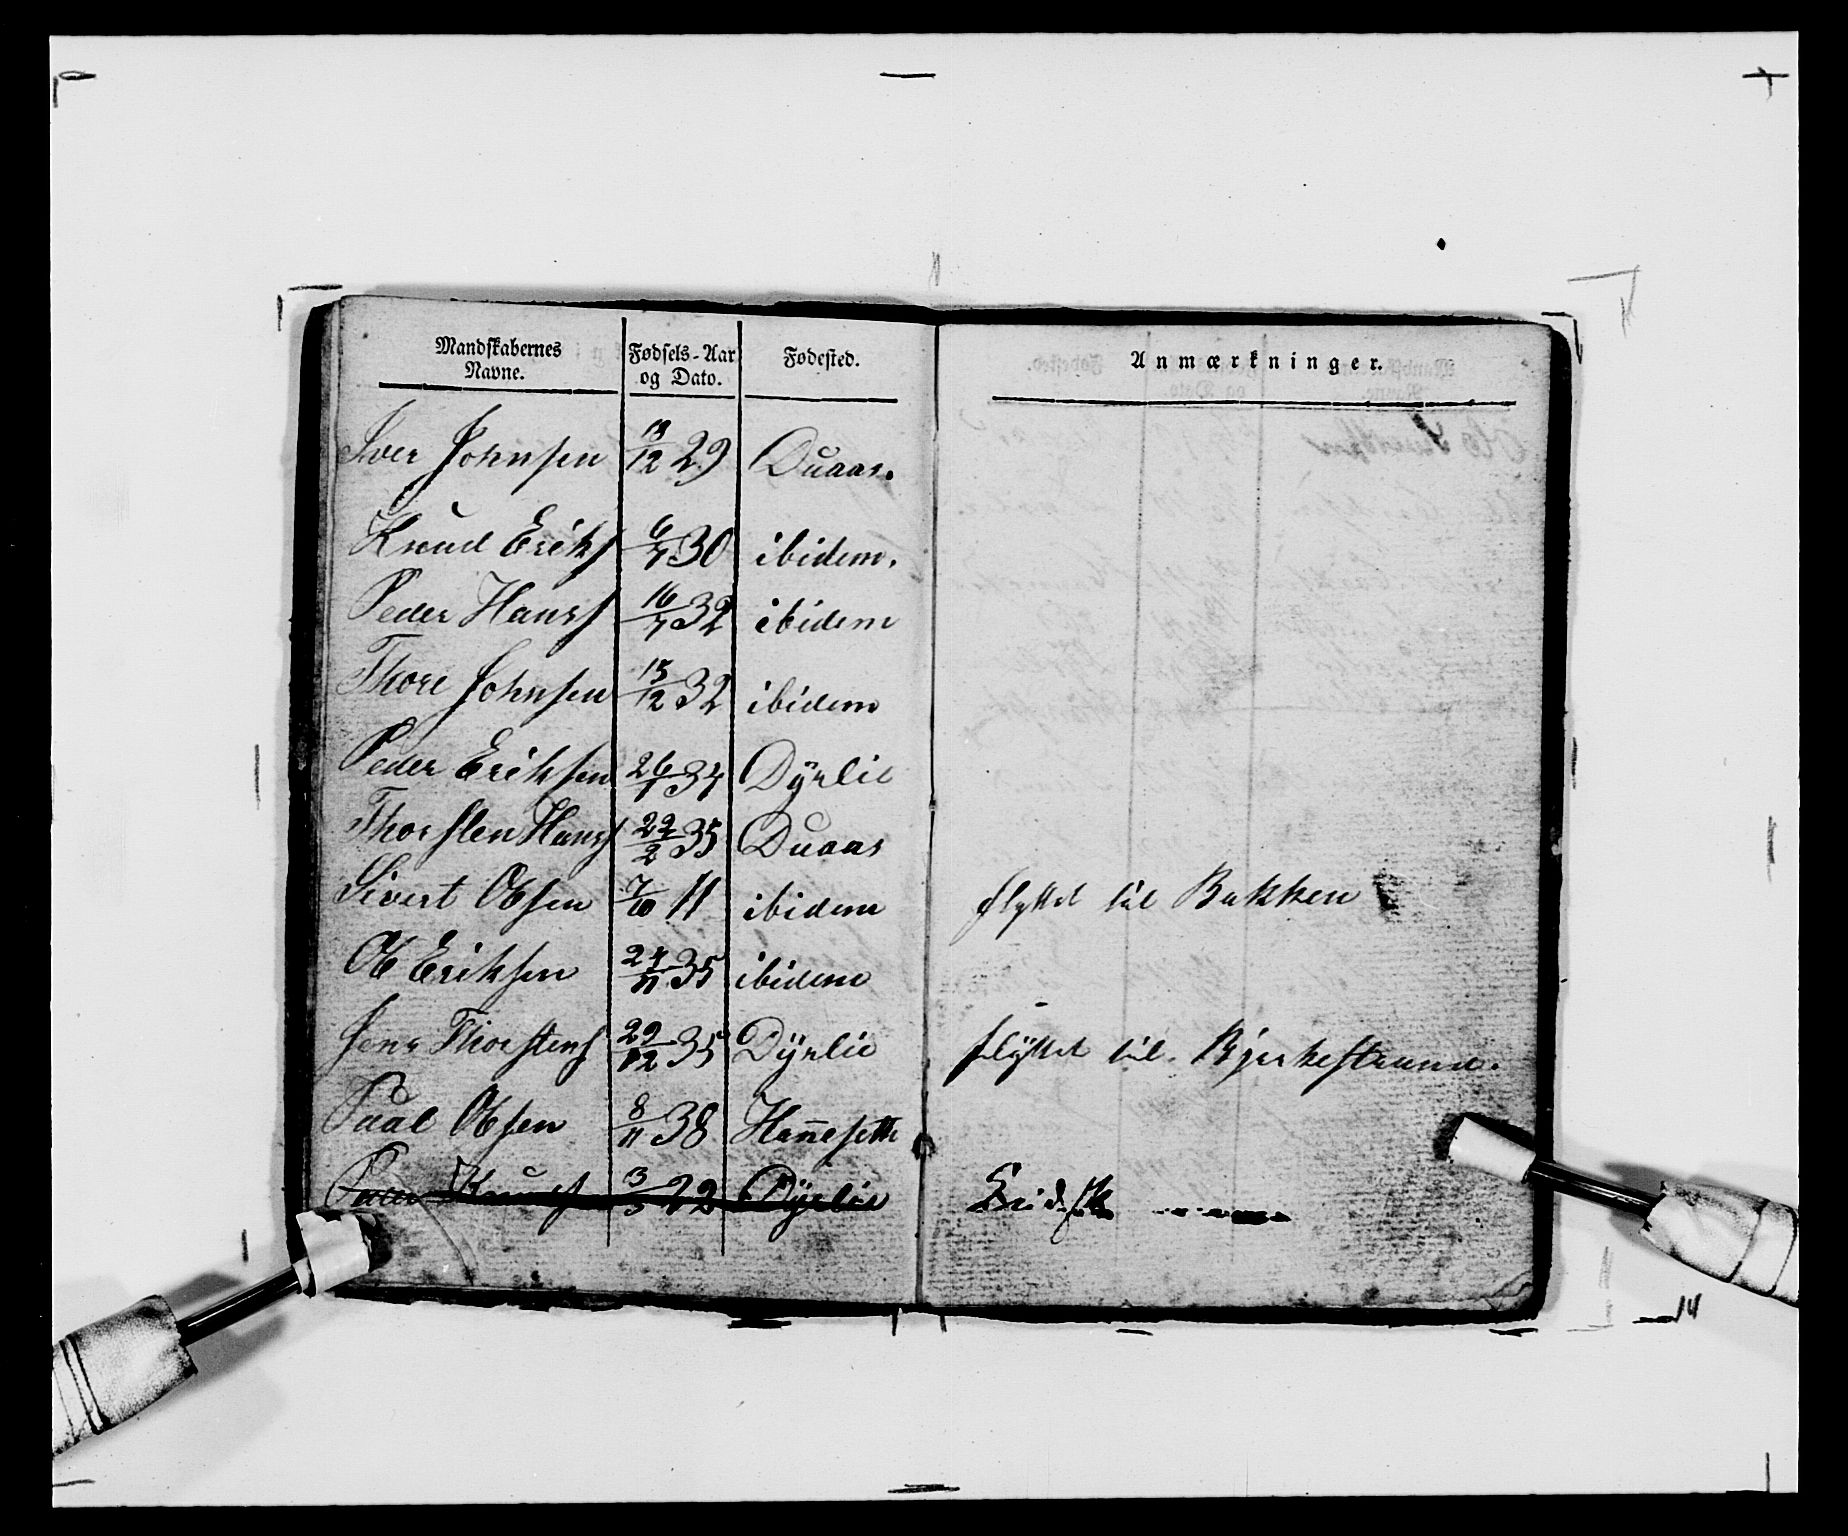 Mandskabernes Navne. Fødsels-Aar og Dato. Fødested. Anmærkninger.
Iver Johnsen 13/12 29 Duaas.
Knud Eriks 6/7 30 ibidem.
Peder Hans 16/7 32 ibidem
Thore Johnsen 15/12 32 ibidem
Peder Eriksen 26/1 34 Dÿrlie
Thorsten Hans 22/2 35 Duaas
Sivert Olsen 7/10 11 ibidem flyttet til Bakken
Ole Eriksen 24/11 35 ibidem
Jens Thorstens 29/12 35 Dÿrlie flÿttet til Bjerkestrand.
Paal Olsen 8/11 38 Hañesetth
Knuds 3/5 22 Dÿrlie
14